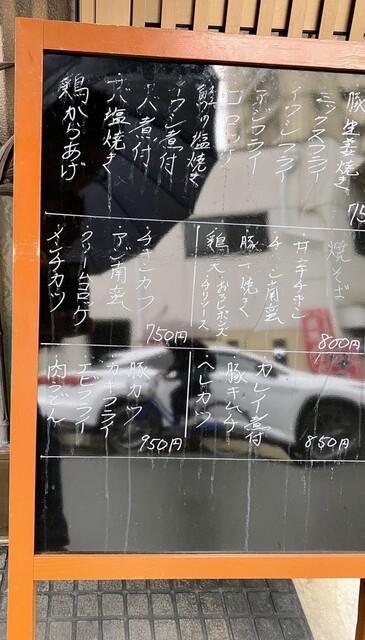 豚生姜焼き
ミックスフライ
イワシフライ
アジフライ
コロッケ
鮭の塩焼き
イワシ煮付
サバ煮付
サバ塩焼き
鶏からあげ
75
焼そば
甘辛チキン
チキン南蛮
豚一焼き
鶏天 おろしポンズ
チリソース
800円
チキンカツ
アジ南蛮
クリームコロッケ
メンチカツ
750円
カレイ煮付
豚キムチ
ヘレカツ
850円
豚カツ
カキフライ
エビフライ
肉うどん
950円